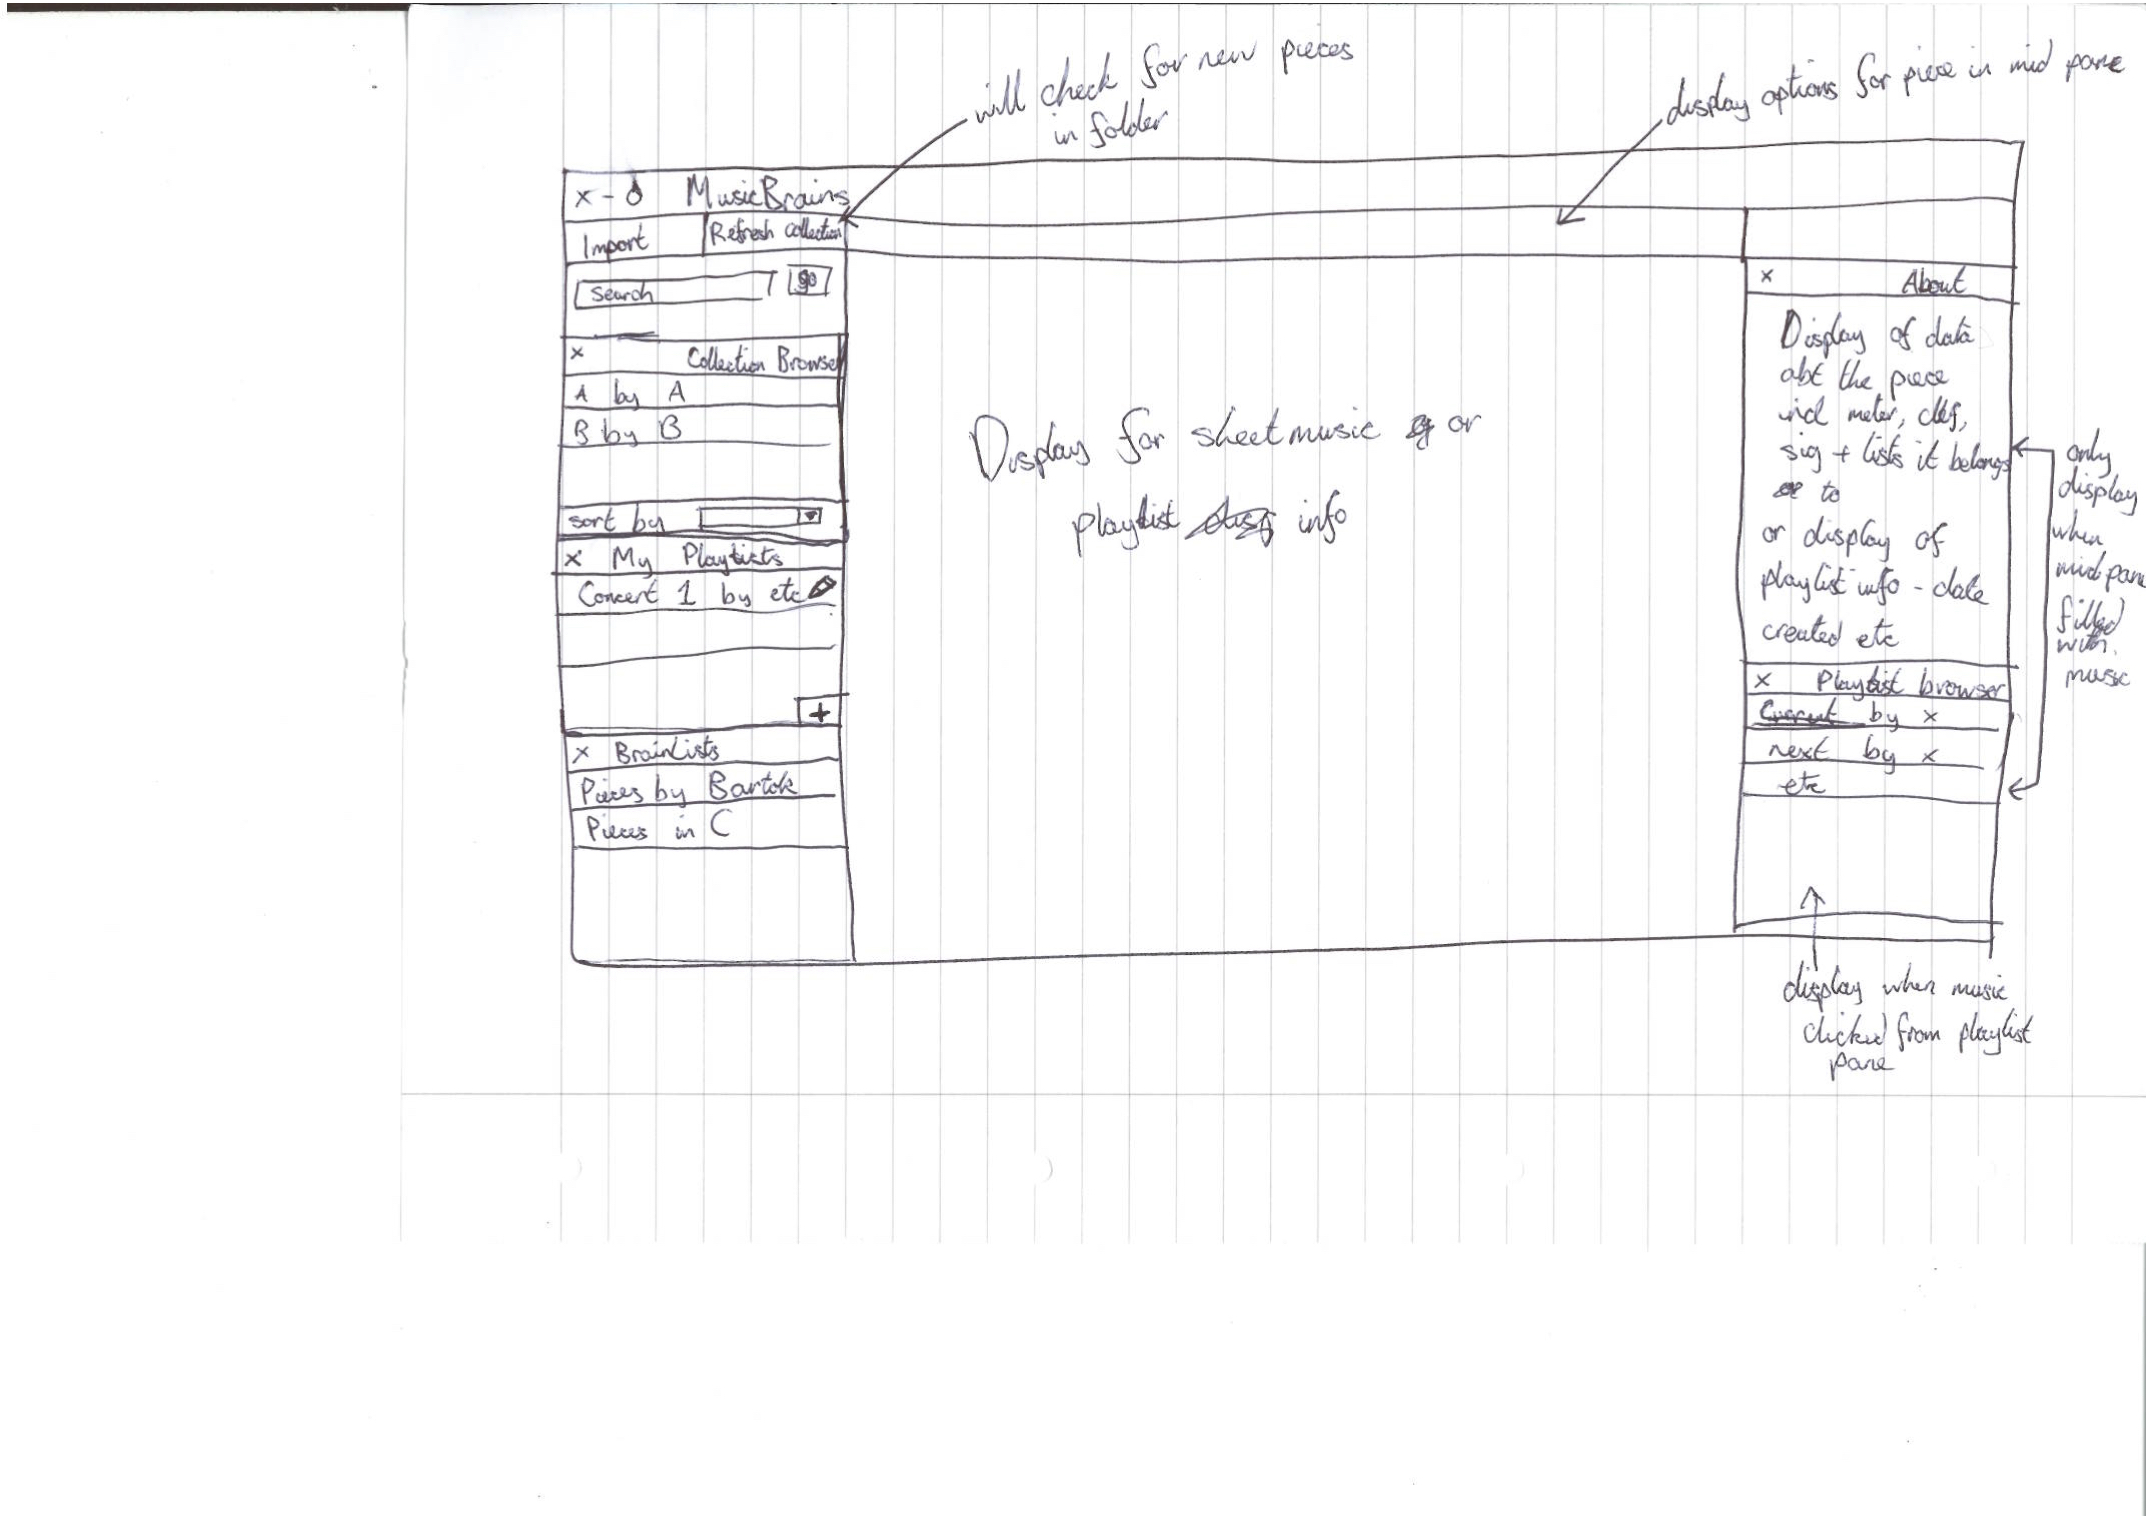 will check for new pieces
in folder
display options for piece in mid pane
x - o MusicBrains
Import Refresh collection
Search go
x Collection Browser
A by A
B by B
sort by
x My Playlists
Concert 1 by etc
+
x BrainLists
Pieces by Bartok
Pieces in C
Display for sheetmusic or
playlist info
x About
Display of data
abt the piece
incl meter, clef,
sig + lists it belongs
to
or display of
playlist info - date
created etc
x Playlist browser
Current by x
next by x
etc
only
display
when
mid pane
filled
with
music
display when music
clicked from playlist
pane